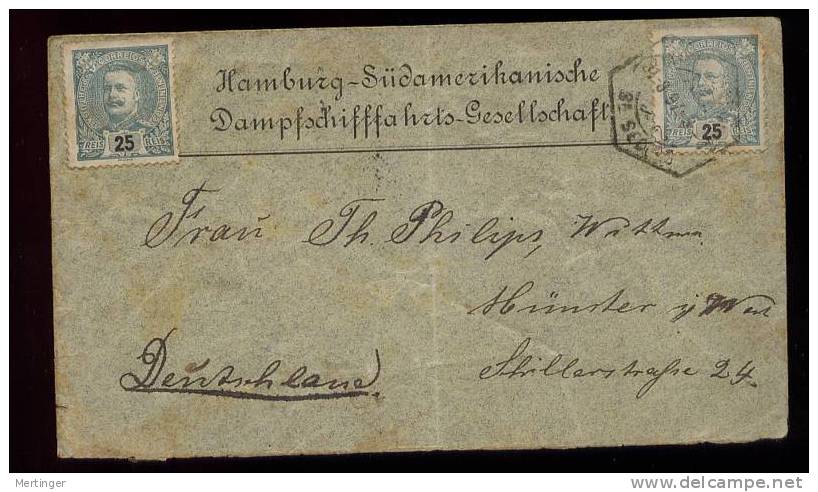 CORREIOS
25
REIS REIS
Hamburg-Südamerikanische
Dampfschifffahrts-Gesellschaft
CORREIOS
25
REIS
Frau Th. Philips, Wittwe
Münster i/ West
Deutschland.
Schillerstraße 24.
Mertinger
www.delcampe.net